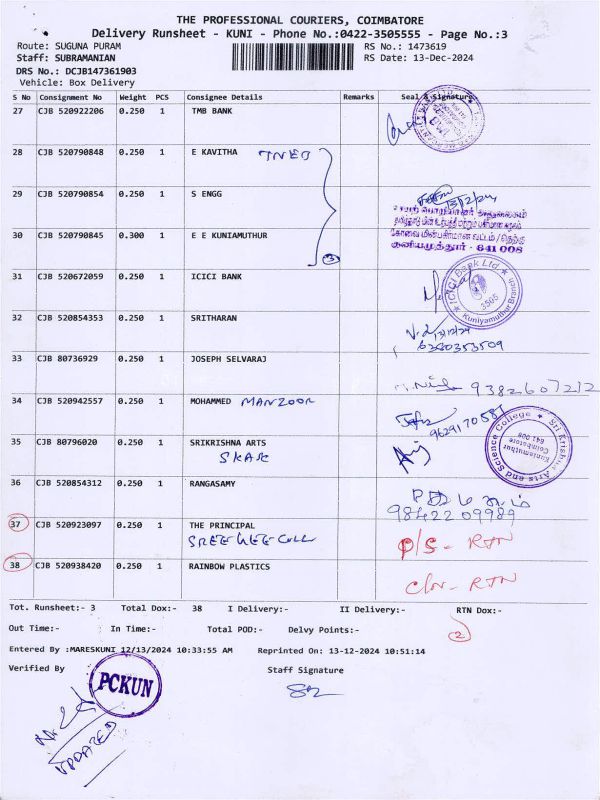 THE PROFESSIONAL COURIERS, COIMBATORE
Delivery Runsheet - KUNI - Phone No.:0422-3505555 - Page No.:3
Route: SUGUNA PURAM RS No.: 1473619
Staff: SUBRAMANIAN RS Date: 13-Dec-2024
DRS No.: DCJB147361903
Vehicle: Box Delivery
S No Consignment No Weight PCS Consignee Details Remarks Seal & Signature
27 CJB 520922206 0.250 1 TMB BANK
28 CJB 520790848 0.250 1 E KAVITHA TNEB
29 CJB 520790854 0.250 1 S ENGG 13/12/24
30 CJB 520790845 0.300 1 E E KUNIAMUTHUR
3
கோவை மின்பகிர்மான வட்டம் / தெற்கு
குனியமுத்தூர் - 641 008
31 CJB 520672059 0.250 1 ICICI BANK
ICICI Bank Ltd
3505
Kuniyamuthur Branch
32 CJB 520854353 0.250 1 SRITHARAN
13/12/24
6380353509
33 CJB 80736929 0.250 1 JOSEPH SELVARAJ
9382607212
34 CJB 520942557 0.250 1 MOHAMMED MANZOOR
9629170581
35 CJB 80796020 0.250 1 SRIKRISHNA ARTS
SKASC
Sri Krishna Arts and Science College
Kuniamuthur
Coimbatore
641 008
36 CJB 520854312 0.250 1 RANGASAMY
9842209989
37 CJB 520923097 0.250 1 THE PRINCIPAL
P/S - RTN
38 CJB 520938420 0.250 1 RAINBOW PLASTICS
RTN
Tot. Runsheet:- 3 Total Dox:- 38 I Delivery:- II Delivery:- RTN Dox:-
2
Out Time:- In Time:- Total POD:- Delvy Points:-
Entered By :MARESKUNI 12/13/2024 10:33:55 AM Reprinted On: 13-12-2024 10:51:14
Verified By Staff Signature
PCKUN
UPDATED